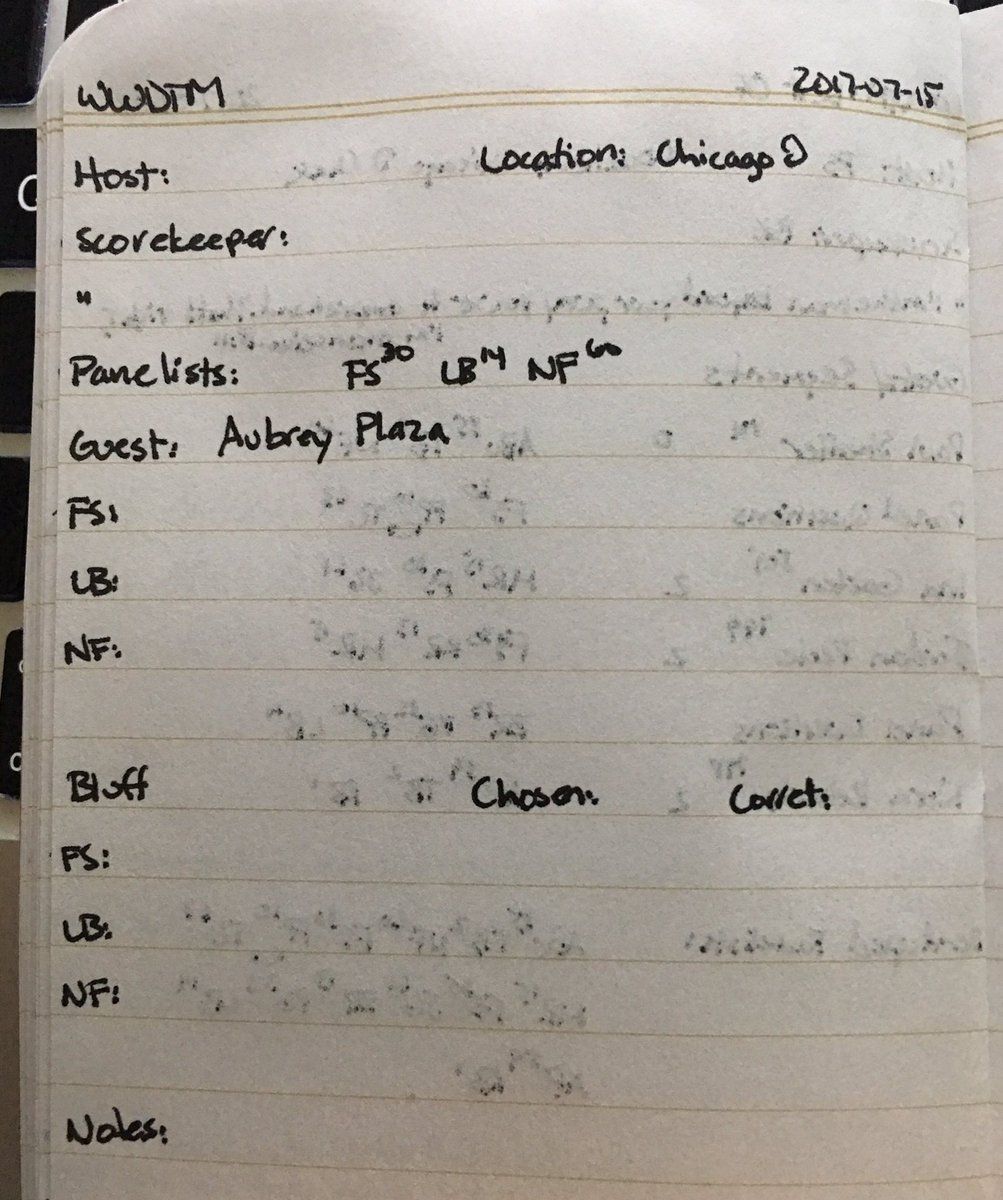 WWDTM 2017-07-15
Host: Location: Chicago
Scorekeeper:
"
Panelists: FS30 LB14 NF60
Guest: Aubrey Plaza
FS:
LB:
NF:
Bluff Chosen: Corret:
FS:
LB:
NF:
Notes: